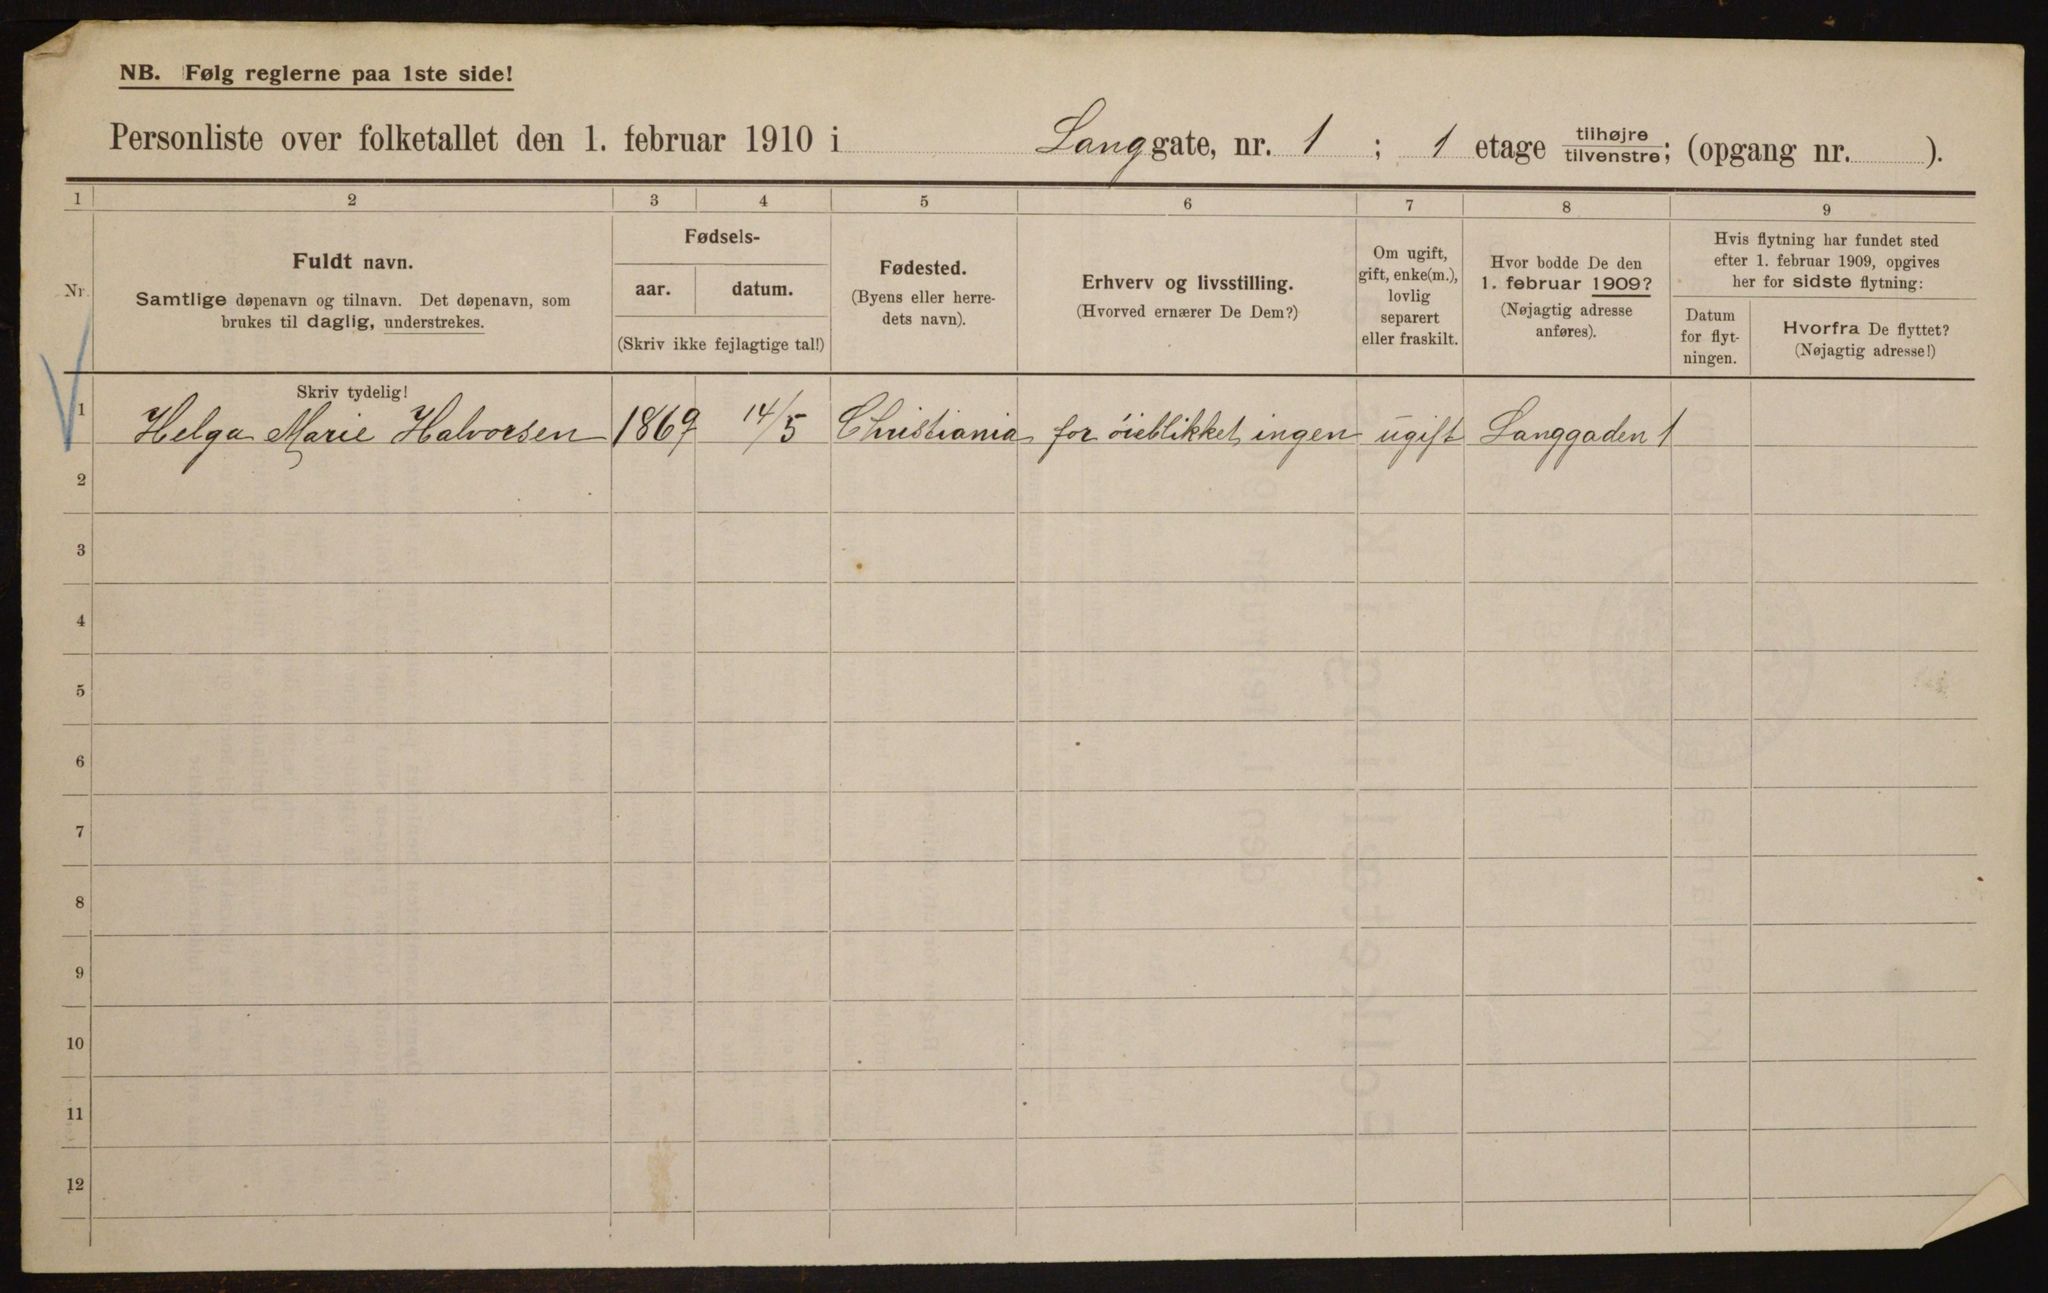 NB. Følg reglerne paa 1ste side!
Personliste over folketallet den 1. februar 1910 i Langgate, nr. 1 ; 1 etage tilhøjre/tilvenstre; (opgang nr. ).
1 2 3 4 5 6 7 8 9
Nr.
Fuldt navn.
Samtlige døpenavn og tilnavn. Det døpenavn, som
brukes til daglig, understrekes.
Skriv tydelig!
Fødsels-
aar. datum.
(Skriv ikke fejlagtige tal!)
Fødested.
(Byens eller herre-
dets navn).
Erhverv og livsstilling.
(Hvorved ernærer De Dem?)
Om ugift,
gift, enke(m.),
lovlig
separert
eller fraskilt.
Hvor bodde De den
1. februar 1909?
(Nøjagtig adresse
anføres).
Hvis flytning har fundet sted
efter 1. februar 1909, opgives
her for sidste flytning:
Datum
for flyt-
ningen.
Hvorfra De flyttet?
(Nøjagtig adresse!)
1 Helga Marie Halvorsen 1869 14/5 Christiania for öieblikket ingen ugift Langgaden 1
2
3
4
5
6
7
8
9
10
11
12